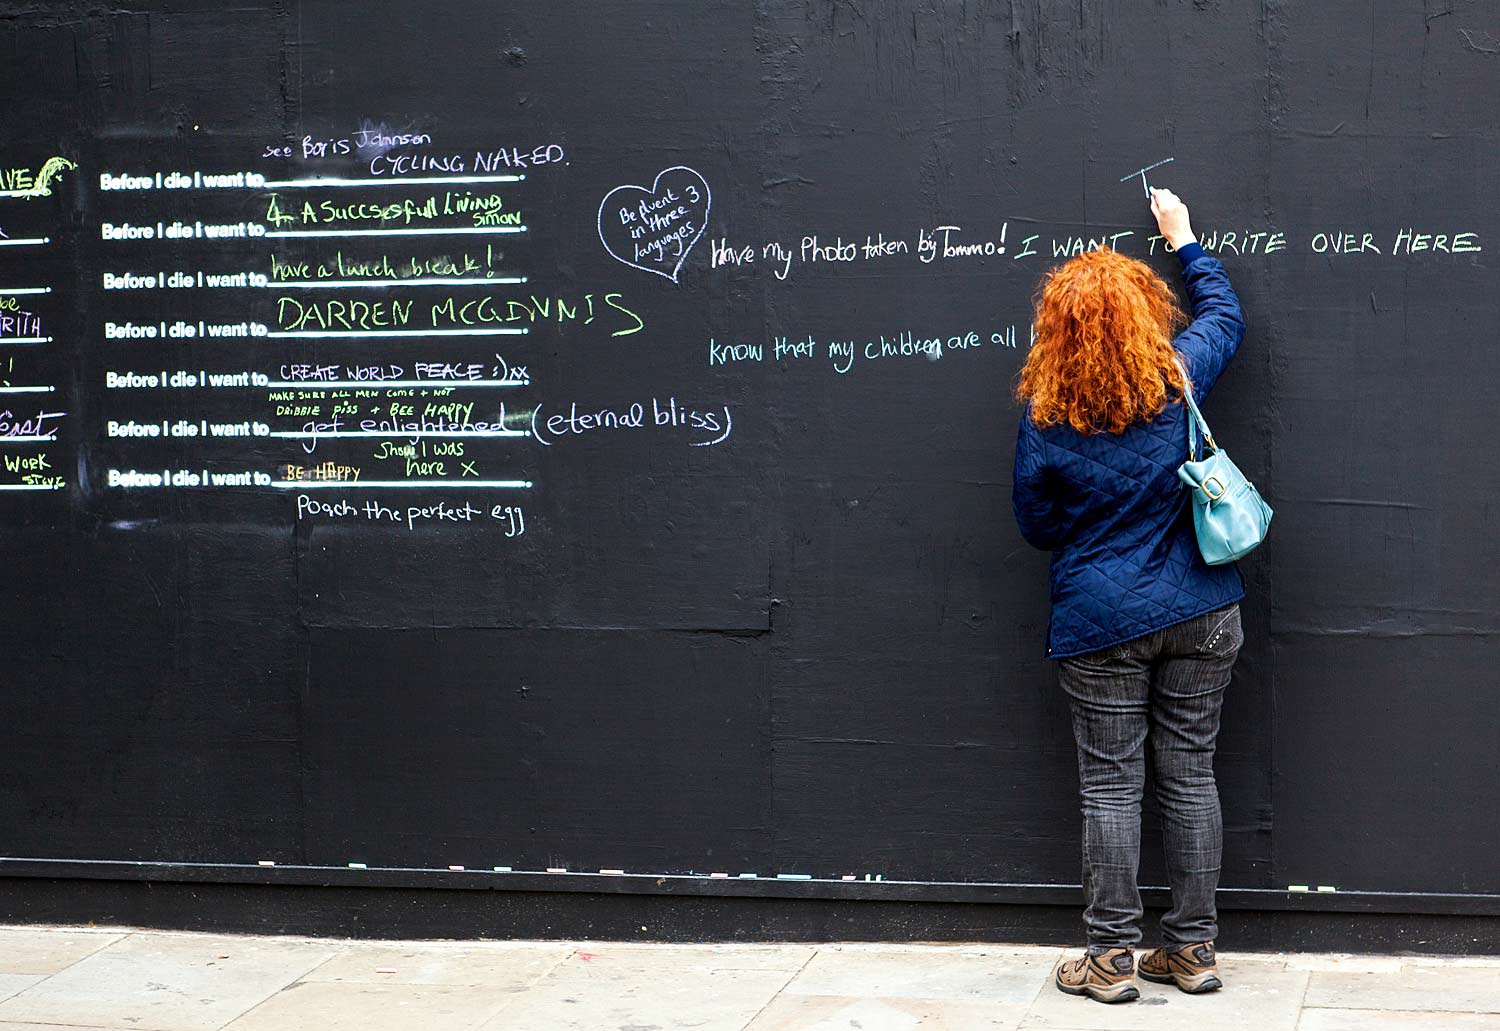 see Boris Johnson
CYCLING NAKED.
Before I die I want to
A Succsesfull LiViNG
SiMON
Before I die I want to
have a lunch break!
Before I die I want to
DARREN MCGINNIS
Before I die I want to
CREATE WORLD PEACE :) xx
Before I die I want to
MAKE SURE ALL MEN COME + NOT
DRIBBLE PISS + BEE HAPPY
get enlightened (eternal bliss)
Before I die I want to
Show I was
here X
BE HAPPY
Before I die I want to
Poach the perfect egg
WORK
STEVE
Be fluent
in three 3
languages
T
Have my Photo taken by Tommo!
I WANT TO WRITE OVER HERE
know that my children are all